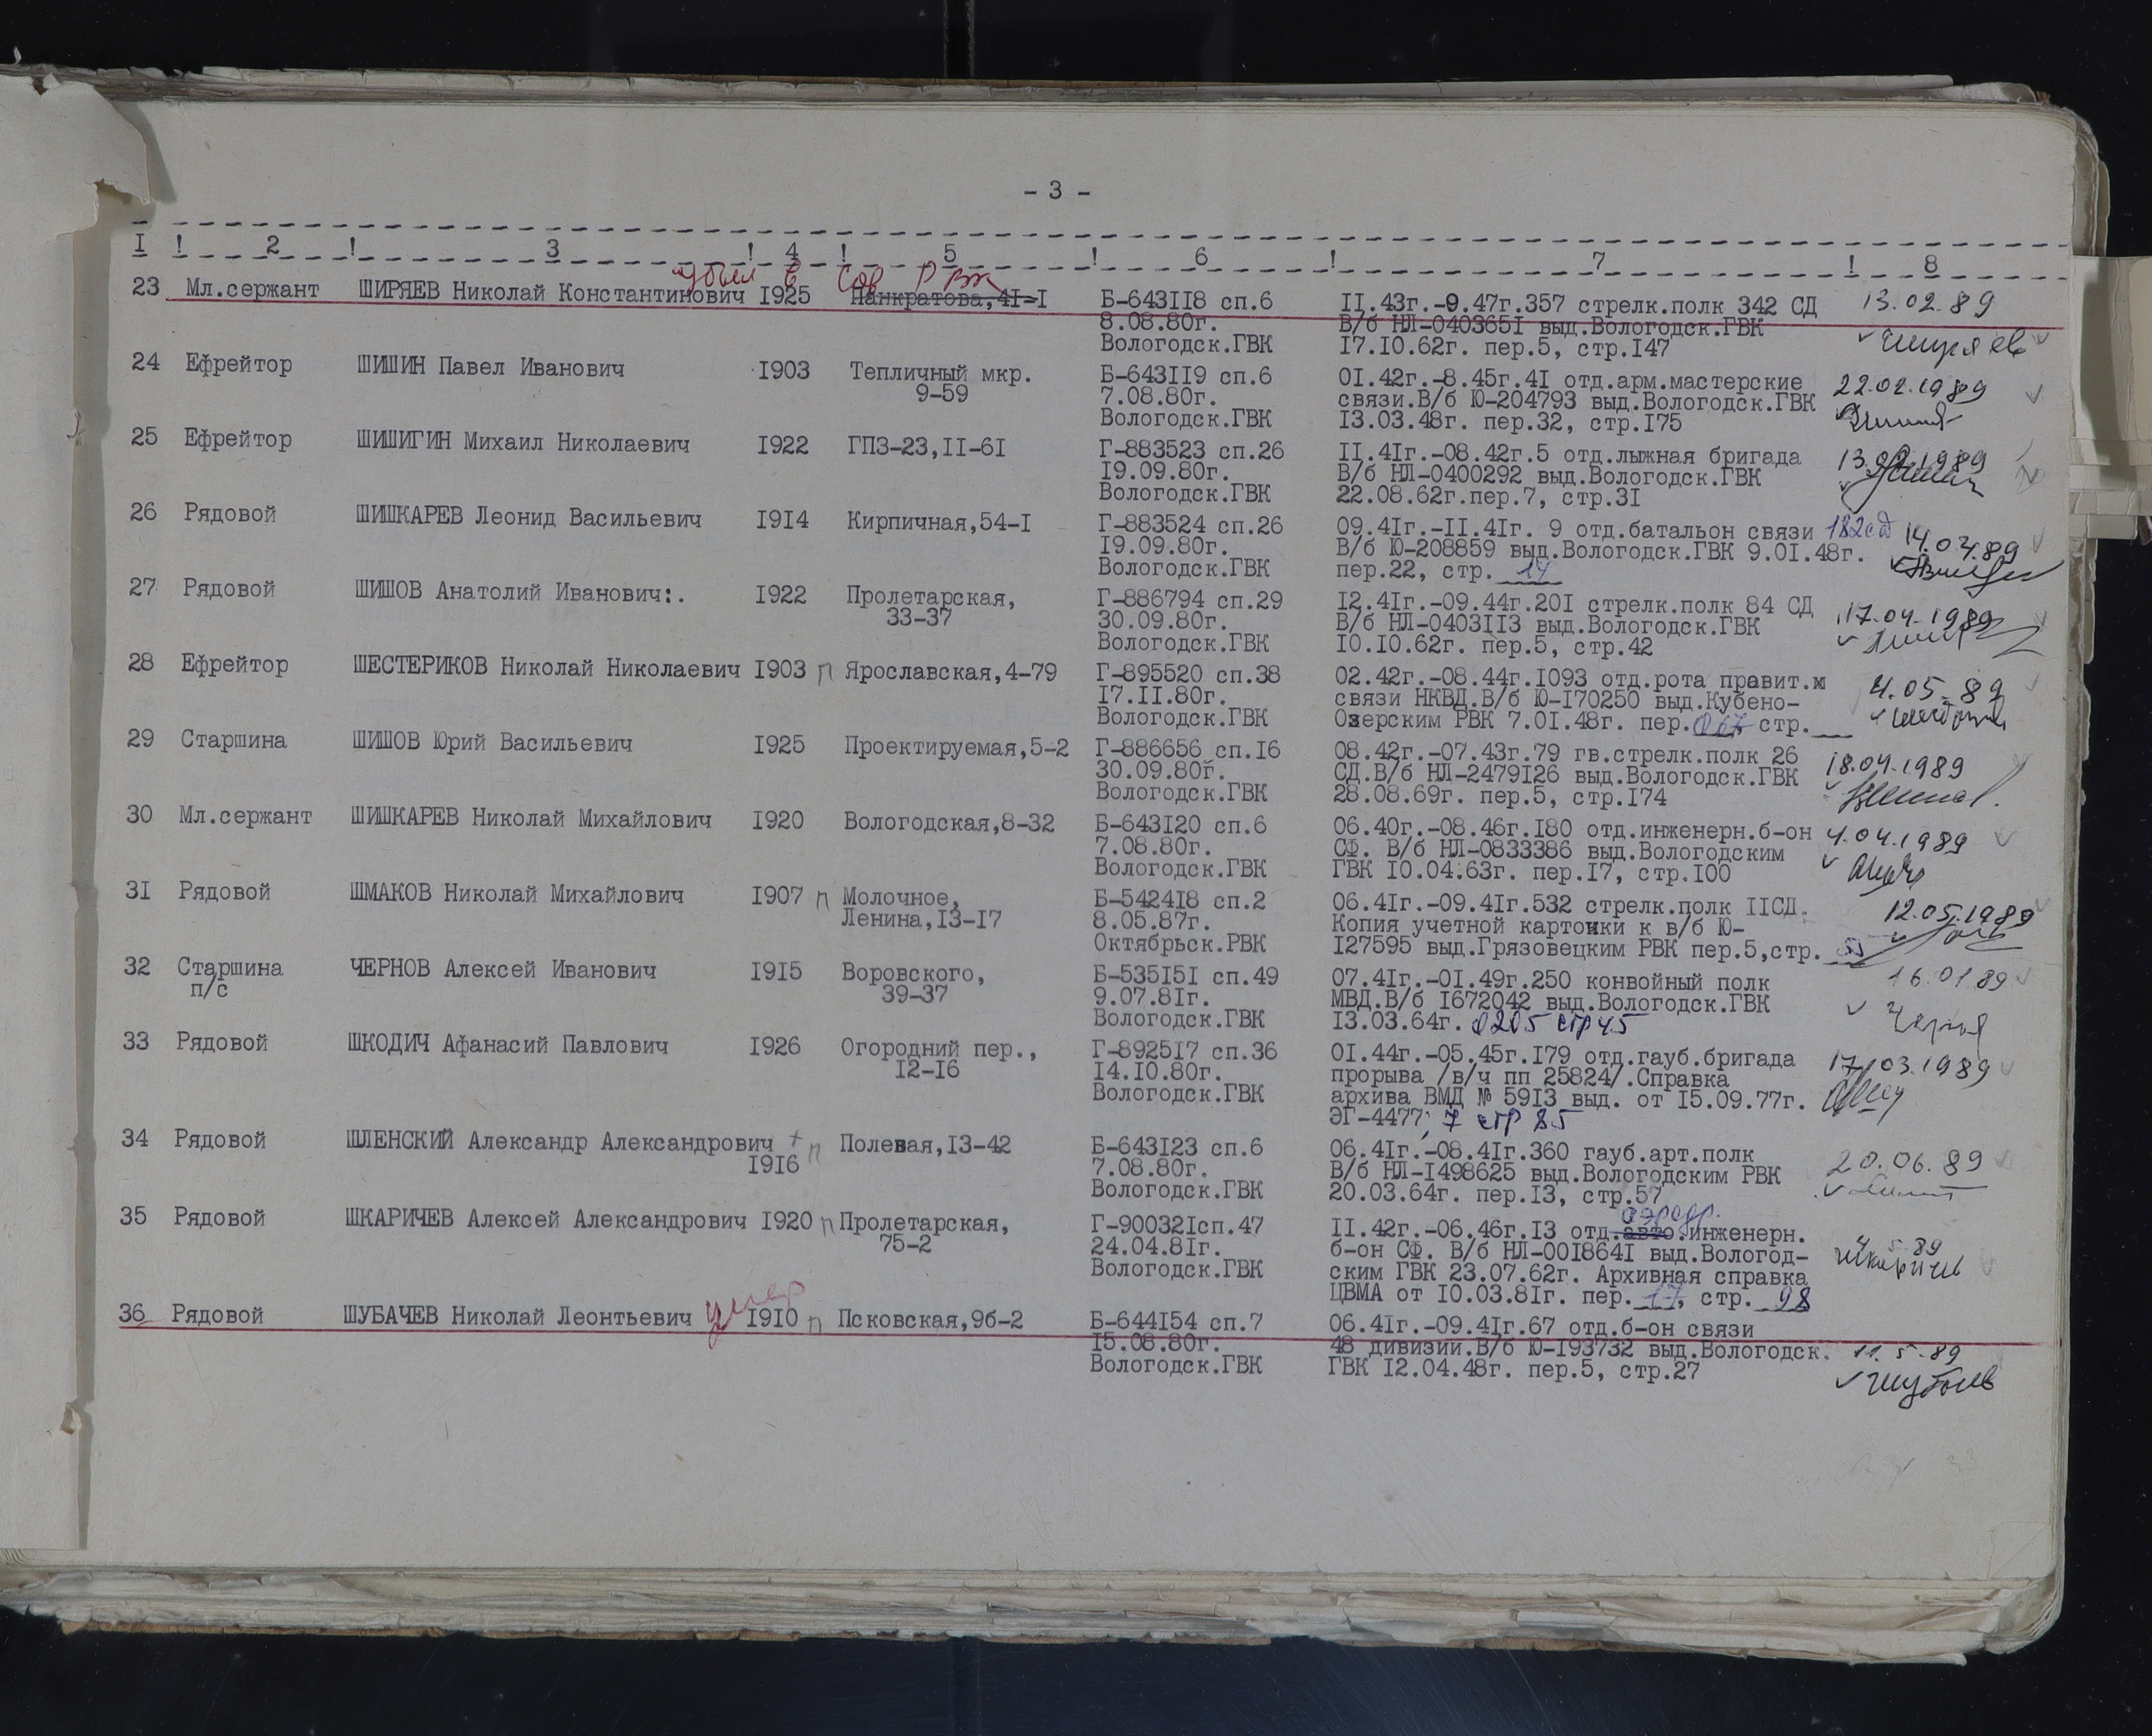 - 3 -
I ! 2 ! 3 ! 4 ! 5 ! 6 ! 7 ! 8
убыл в Сов РВК
23 Мл.сержант ШИРЯЕВ Николай Константинович 1925 Панкратова,41-1 Б-643118 сп.6 11.43г.-9.47г.357 стрелк.полк 342 СД 13.02.89
8.08.80г. В/б НЛ-0403651 выд.Вологодск.ГВК
Вологодск.ГВК 17.10.62г. пер.5, стр.147 Ширяев
24 Ефрейтор ШИШИН Павел Иванович 1903 Тепличный мкр. Б-643119 сп.6 01.42г.-8.45г.41 отд.арм.мастерские 22.02.1989
9-59 7.08.80г. связи.В/б Ю-204793 выд.Вологодск.ГВК
Вологодск.ГВК 13.03.48г. пер.32, стр.175
25 Ефрейтор ШИШИГИН Михаил Николаевич 1922 ГПЗ-23,11-61 Г-883523 сп.26 11.41г.-08.42г.5 отд.лыжная бригада 13.02.1989
19.09.80г. В/б НЛ-0400292 выд.Вологодск.ГВК
Вологодск.ГВК 22.08.62г.пер.7, стр.31
26 Рядовой ШИШКАРЕВ Леонид Васильевич 1914 Кирпичная,54-1 Г-883524 сп.26 09.41г.-11.41г. 9 отд.батальон связи 182сд 14.04.89
19.09.80г. В/б Ю-208859 выд.Вологодск.ГВК 9.01.48г.
Вологодск.ГВК пер.22, стр. 14
27 Рядовой ШИШОВ Анатолий Иванович:. 1922 Пролетарская, Г-886794 сп.29 12.41г.-09.44г.201 стрелк.полк 84 СД 17.04.1989
33-37 30.09.80г. В/б НЛ-0403113 выд.Вологодск.ГВК
Вологодск.ГВК 10.10.62г. пер.5, стр.42
28 Ефрейтор ШЕСТЕРИКОВ Николай Николаевич 1903 п Ярославская,4-79 Г-895520 сп.38 02.42г.-08.44г.1093 отд.рота правит. 4.05.89
17.11.80г. связи НКВД.В/б Ю-170250 выд.Кубено-
Вологодск.ГВК Озерским РВК 7.01.48г. пер. стр.
29 Старшина ШИШОВ Юрий Васильевич 1925 Проектируемая,5-2 Г-886656 сп.16 08.42г.-07.43г.79 гв.стрелк.полк 26 18.04.1989
30.09.80г. СД.В/б НЛ-2479126 выд.Вологодск.ГВК
Вологодск.ГВК 28.08.69г. пер.5, стр.174
30 Мл.сержант ШИШКАРЕВ Николай Михайлович 1920 Вологодская,8-32 Б-643120 сп.6 06.40г.-08.46г.180 отд.инженерн.б-он 4.04.1989
7.08.80г. СФ. В/б НЛ-0833386 выд.Вологодским
Вологодск.ГВК ГВК 10.04.63г. пер.17, стр.100
31 Рядовой ШМАКОВ Николай Михайлович 1907 п Молочное, Б-542418 сп.2 06.41г.-09.41г.532 стрелк.полк 11СД. 12.05.1989
Ленина,13-17 8.05.87г. Копия учетной карточки к в/б Ю-
Октябрьск.РВК 127595 выд.Грязовецким РВК пер.5,стр.
32 Старшина ЧЕРНОВ Алексей Иванович 1915 Воровского, Б-535151 сп.49 07.41г.-01.49г.250 конвойный полк 16.01 89
п/с 39-37 9.07.81г. МВД.В/б 1672042 выд.Вологодск.ГВК
Вологодск.ГВК 13.03.64г. стр 45 Чернов
33 Рядовой ШКОДИЧ Афанасий Павлович 1926 Огородний пер., Г-892517 сп.36 01.44г.-05.45г.179 отд.гауб.бригада 17.03.1989
12-16 14.10.80г. прорыва /в/ч пп 25824/.Справка
Вологодск.ГВК архива ВМД № 5913 выд. от 15.09.77г.
ЭГ-4477; 7 стр 85
34 Рядовой ШЛЕНСКИЙ Александр Александрович + п Полевая,13-42 Б-643123 сп.6 06.41г.-08.41г.360 гауб.арт.полк 20.06.89
1916 7.08.80г. В/б НЛ-1498625 выд.Вологодским РВК
Вологодск.ГВК 20.03.64г. пер.13, стр.57
аэродр.
35 Рядовой ШКАРИЧЕВ Алексей Александрович 1920 п Пролетарская, Г-900321сп.47 11.42г.-06.46г.13 отд.авто.инженерн.
75-2 24.04.81г. б-он СФ. В/б НЛ-0018641 выд.Вологод- 4.5.89
Вологодск.ГВК ским ГВК 23.07.62г. Архивная справка Шкаричев
ЦВМА от 10.03.81г. пер. 17, стр. 98
36 Рядовой ШУБАЧЕВ Николай Леонтьевич умер 1910 п Псковская,9б-2 Б-644154 сп.7 06.41г.-09.41г.67 отд.б-он связи
15.08.80г. 48 дивизии.В/б Ю-193732 выд.Вологодск. 11.5.89
Вологодск.ГВК ГВК 12.04.48г. пер.5, стр.27